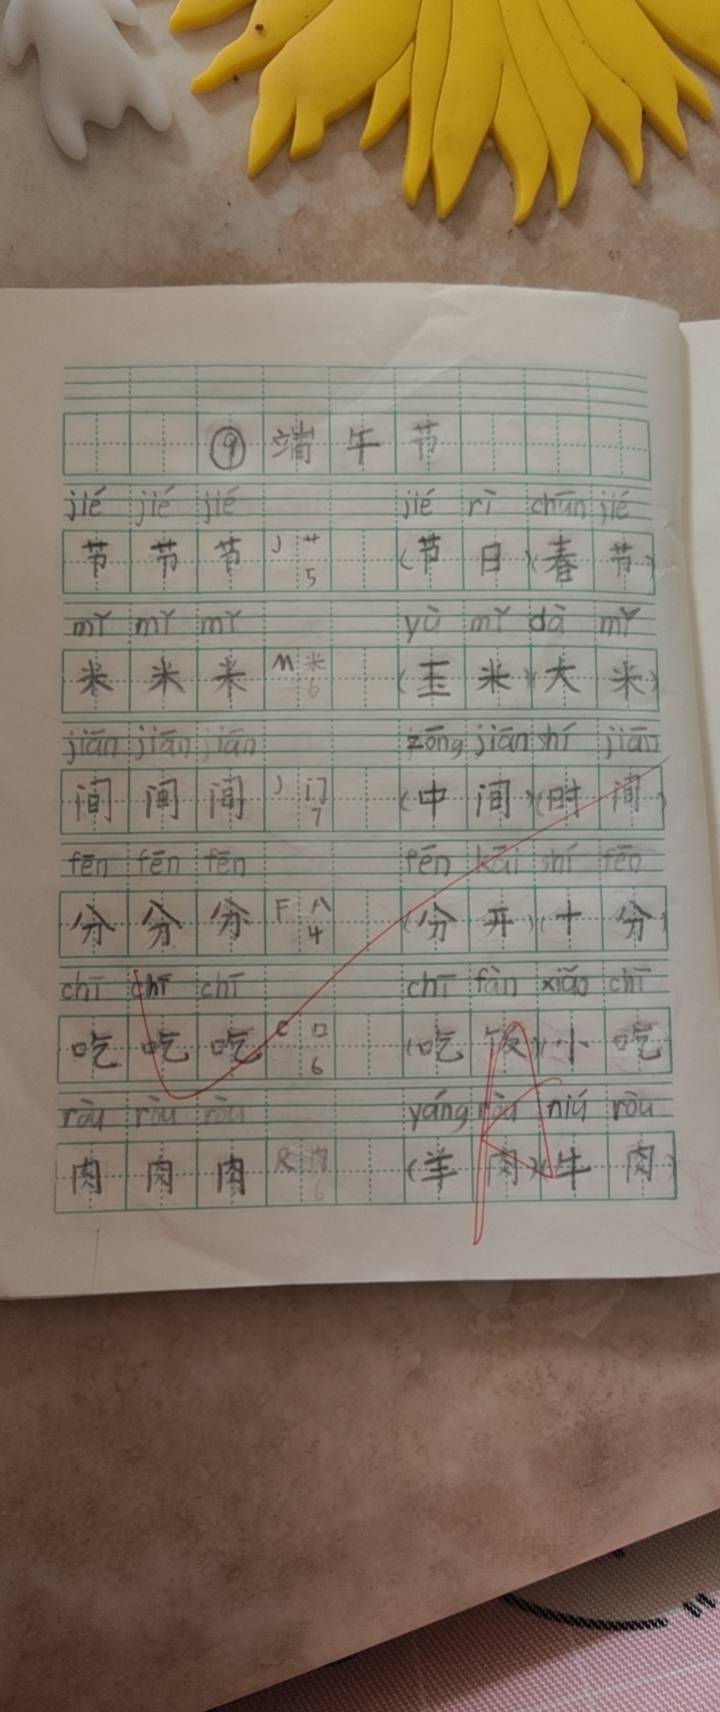 ⑨ 端午节
jié jié jié jié rì chūn jié
节 节 节 J 艹 5 (节日)(春节)
mǐ mǐ mǐ yù mǐ dà mǐ
米 米 米 M 米 6 (玉米)(大米)
jiān jiān jiān zōng jiān shí jiān
间 间 间 J 门 7 (中间)(时间)
fēn fēn fēn fēn kāi shí fēn
分 分 分 F 八 4 (分开)(十分)
chī chī chī chī fàn xiǎo chī
吃 吃 吃 C 口 6 (吃饭)(小吃)
ròu ròu ròu yáng ròu niú ròu
肉 肉 肉 R 肉 6 (羊肉)(牛肉)
A